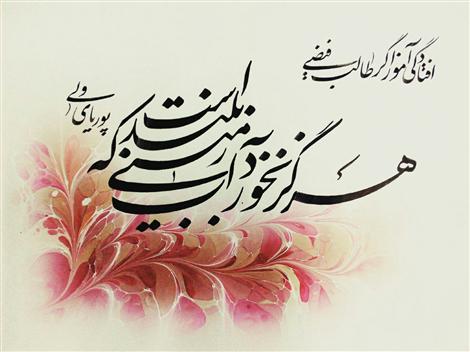 افتادگی آموز اگر طالب فیضی
هرگز نخورد آب زمینی که بلند است
پوریای ولی